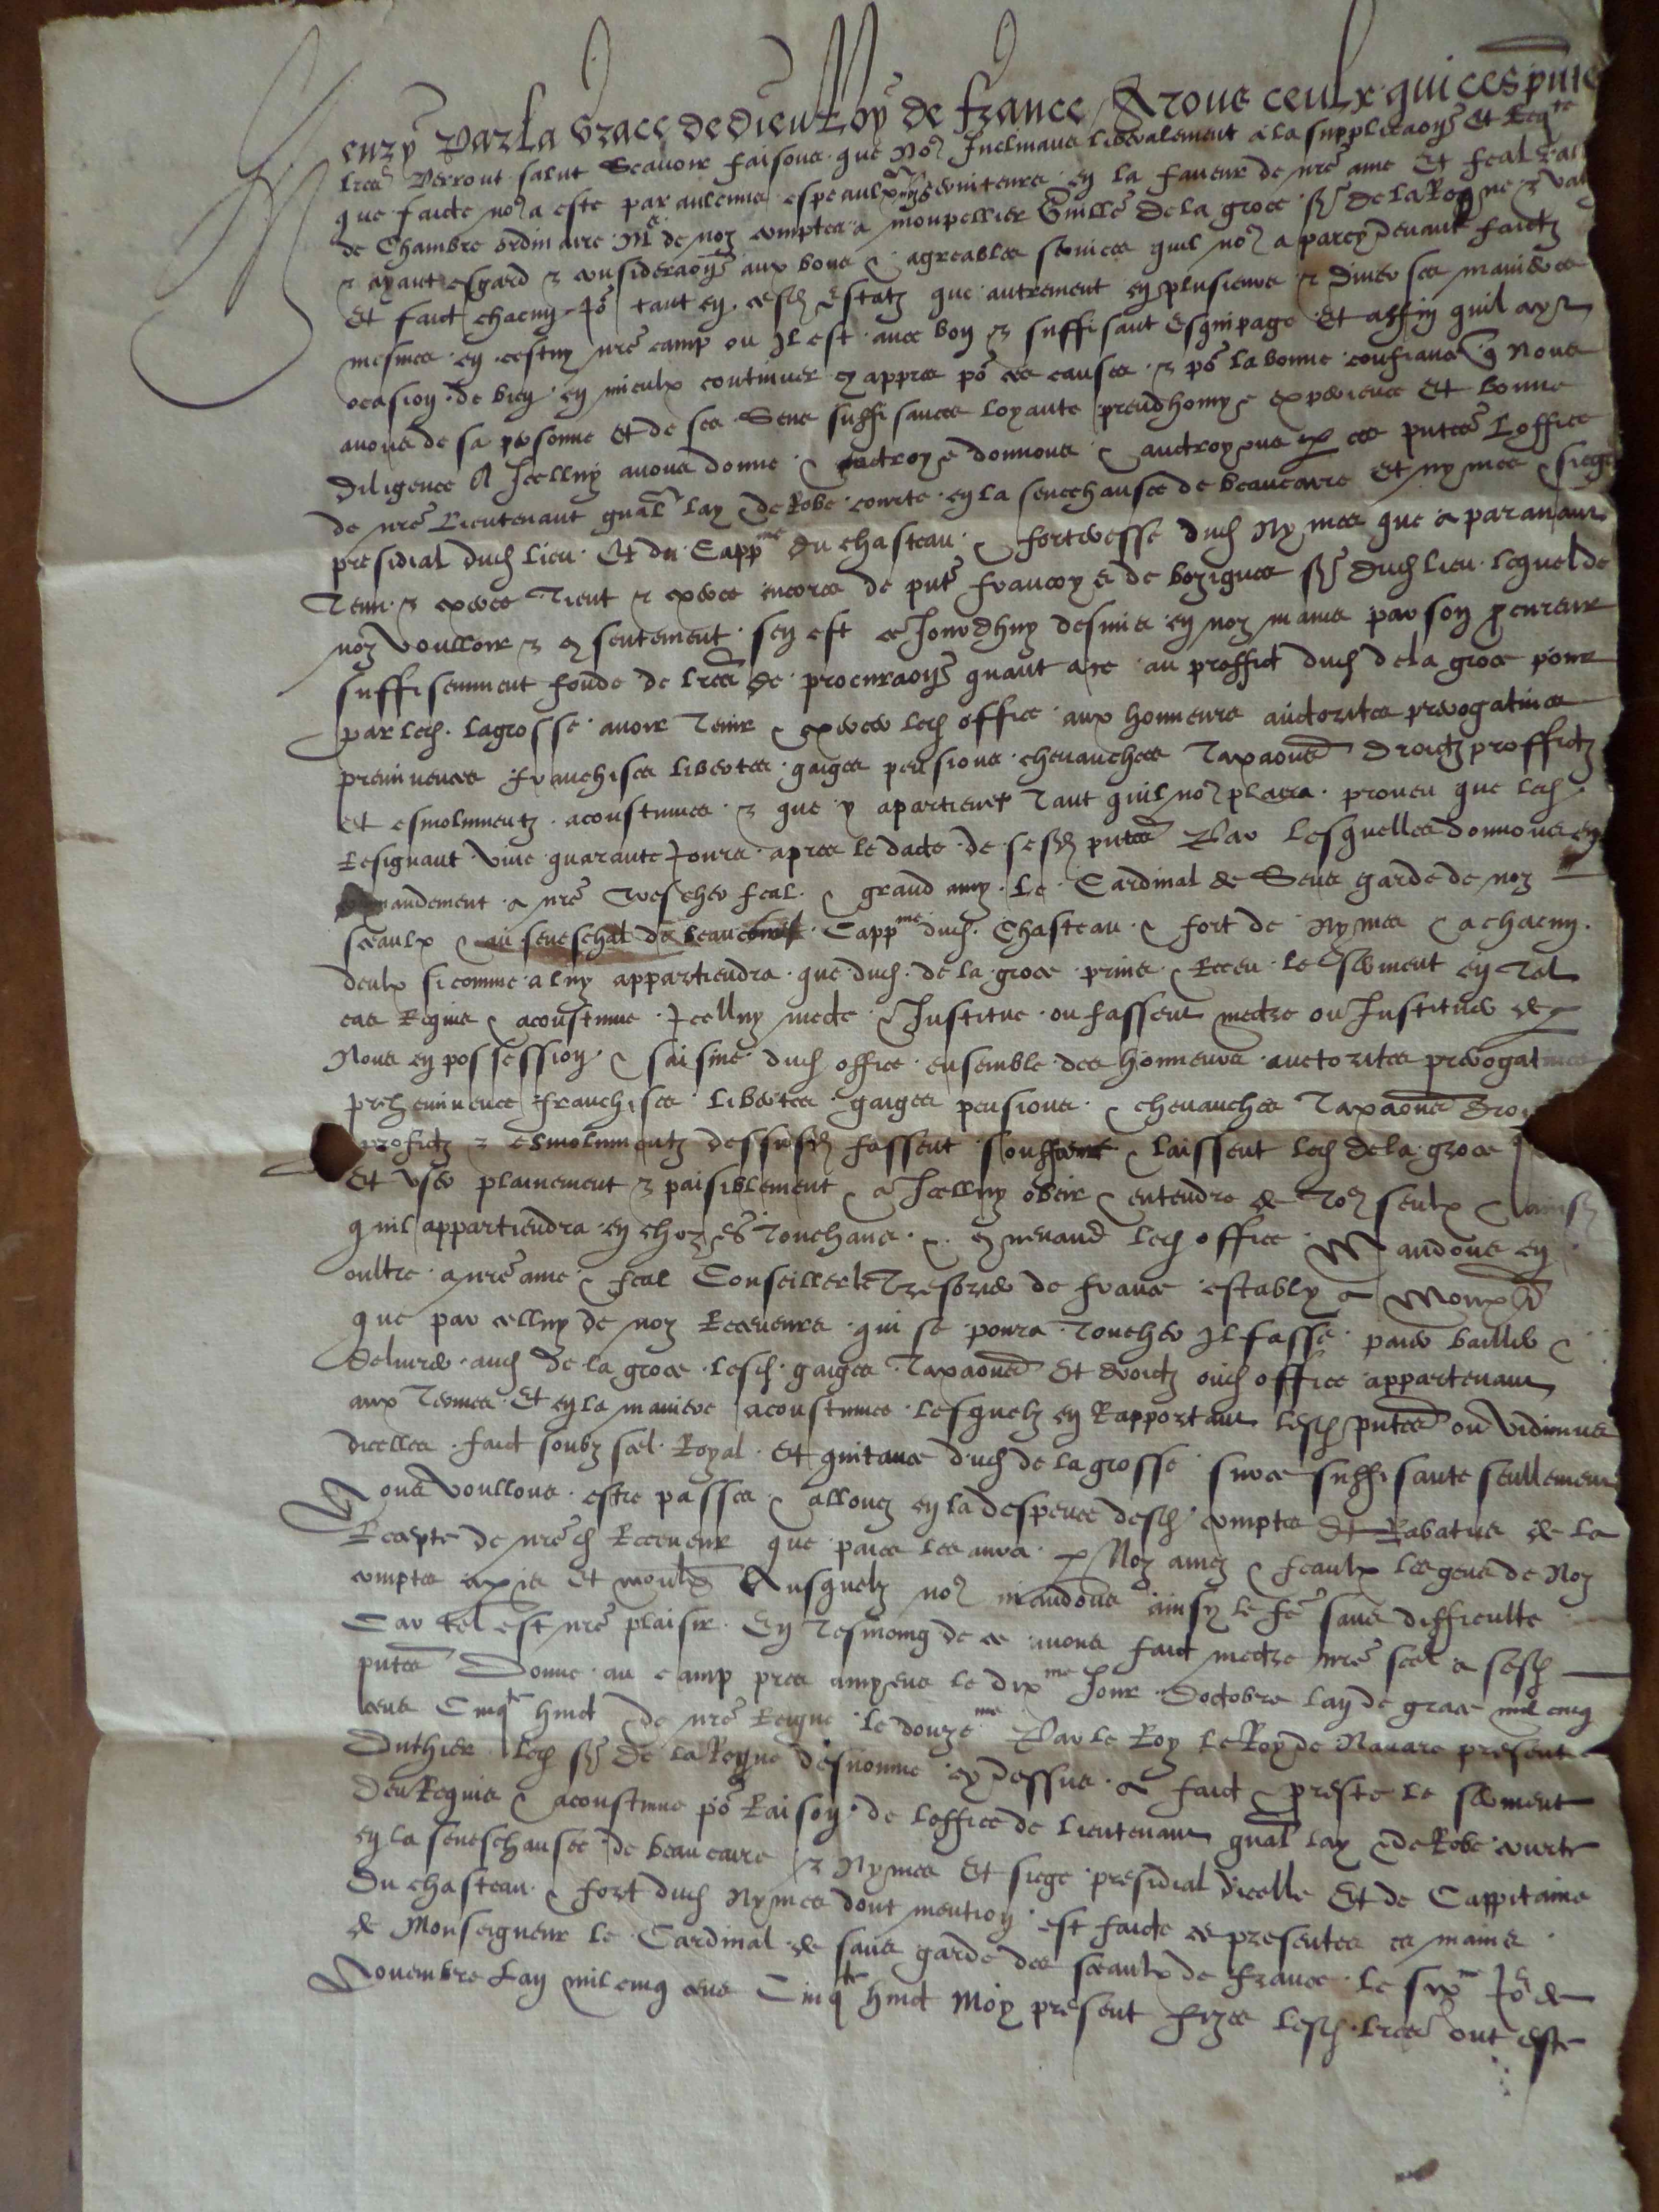 Henry par la grace de dieu Roy de france A tous ceulx qui ces pntes
lres verront salut Scavoir faisons que nos Inclinans liberalement a la supplicaon et Reqte
que faicte nos a este par aulcuns espeaulx serviteurs en la faveur de nre ame et feal
de Chambre ordinaire Me de noz comptes a monpellier Guille de la groce sr de la Rogne & val
& ayant esgard & consideraon aux bons & agreables services quil nos a par cy devant faictz
et faict chacun Jo tant en cesd estatz que autrement en plusieurs & diverses manieres
mesmes en cestuy nre camp ou Il est avec bon & suffisant esquipage Et affin quil ayt
ocasion de bien en mieulx continuer cy appres po ces causes & po la bonne confiance q Nous
avons de sa personne et de ses Sens suffisances loyaulte preudhomye experience et bonne
diligence A Icelluy avons donne & auctroye donnons & auctroyons p ces pntes Loffice
de nre Lieutenant gnal lay de Robe courte en la seneschausee de beaucaire et nymes & siege
presidial dud lieu Et du Cappne du chasteau & forteresse dud Nymes que a par avant
Tenu & exerce Tient & exerce encores de pnt francoys de bozignes sr dud lieu lequel de
noz voulloir & consentement sen est ce Jourdhuy desmis en noz mains par son procureur
suffisemment fonde de lres de procuraon quant a ce au proffict dud de la groce pour
par led. lagrosse avoir Tenir & exercer led office aux honneurs auctorites prerogatives
preminences franchises libertes gaiges pensions chevauches Taxaons droictz proffictz
et esmolumentz acoustumes & que y apartienet Tant quil nos plaira proveu que led
Resignant vive quarante Jours apres le date de sesd pntes Par lesquelles donnons en
mandement a nre Trescher feal & grand amy Le Cardinal de Sens garde de noz
sceaulx & au seneschal de beaucaire Cappne dud. Chasteau & fort de Nymes & a chacun
deulx si comme a luy appartiendra que dud. de la groce prins & Receu le serment en Tel
cas Requis & acoustume Icelluy mecte & Institue ou fassent mectre ou Instituer de p
Nous en possession & saisine dud office ensemble des honneurs auctorites prerogatives
preheminence franchises libertes gaiges pensions & chevauches Taxaons
profictz & esmolumentz dessusd fassent souffrent & laissent led de la groce
Et user plainement & paisiblement & a Icelluy obeir & entendre de Tos ceulx & ainsi
quil appartiendra en chozes Touchans & concernand led office Mandons en
oultre a nre ame & feal Conseiller le Tresorier de france estably a Monp
que par celluy de noz Receveurs qui se poura Toucher Il fasse paier bailler &
delivrer aud de la groce lesd gaiges Taxaons Et droictz aud office appartenans
aux Termes Et en la maniere acoustumes lesquelz en Rapportant lesd pntes ou vidimus
dicelles faict soubz scel Royal Et quitance dud de la grosse sur ce suffisante seullement
Nous voullons estre passes & alloues en la despence desd comptes Et Rabatus de la
Recepte de nred Receveur que paies les aura p Noz amez & feaulx les gens de Noz
comptes Ausquelz nos mandons ainsy le fe sans difficulte
Car tel est nre plaisir En Tesmoing de ce avons faict mectre nre scel a sesd
pntes Donne au camp pres amyens le dixme Jour doctobre lan de grace mil cinq
cens Cinqte huict & de nre Reigne le douzeme Par le Roy le Roy de Navare present
Duthier led sr de la Rogne desnomme cy dessus a faict & preste le serment
deu Requis & acoustume po Raison de loffice de lieutenant gnal lay & de Robe courte
en la seneschausee de beaucaire & Nymes Et siege presidial dicelle Et de Cappitaine
du chasteau & fort dud Nymes dont mention est faicte ce presentes es mains
de Monseigneur le Cardinal de sans garde des sceaulx de france le sixme Jo de
Novembre Lan mil cinq cens Cinqte huict Moy present fizes lesd lres ont este